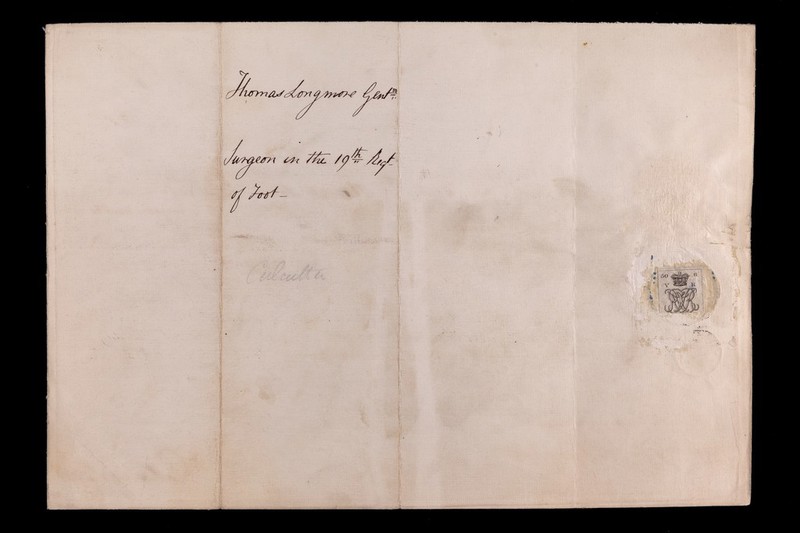 Thomas Longmore Gent.m
Surgeon in the 19th Regt
of Foot —
Calcutta